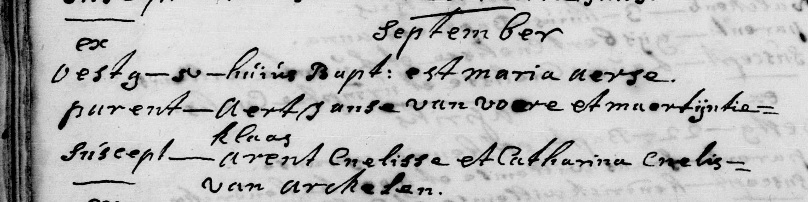 September
ex
oestg – 5 – huius Bapt: est maria aerse.
parent — Aert Janse van voore et maertijntie=
klaas
Suscept — arent Cnelisse et Catharina Cnelis=
van arckelen.